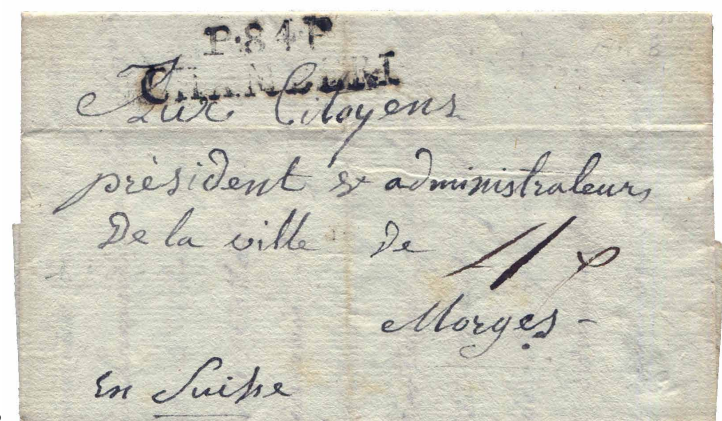 P.84.P
CHAMBERI
Aux Citoyens
président & administrateurs
De la ville de
Morges -
En Suisse